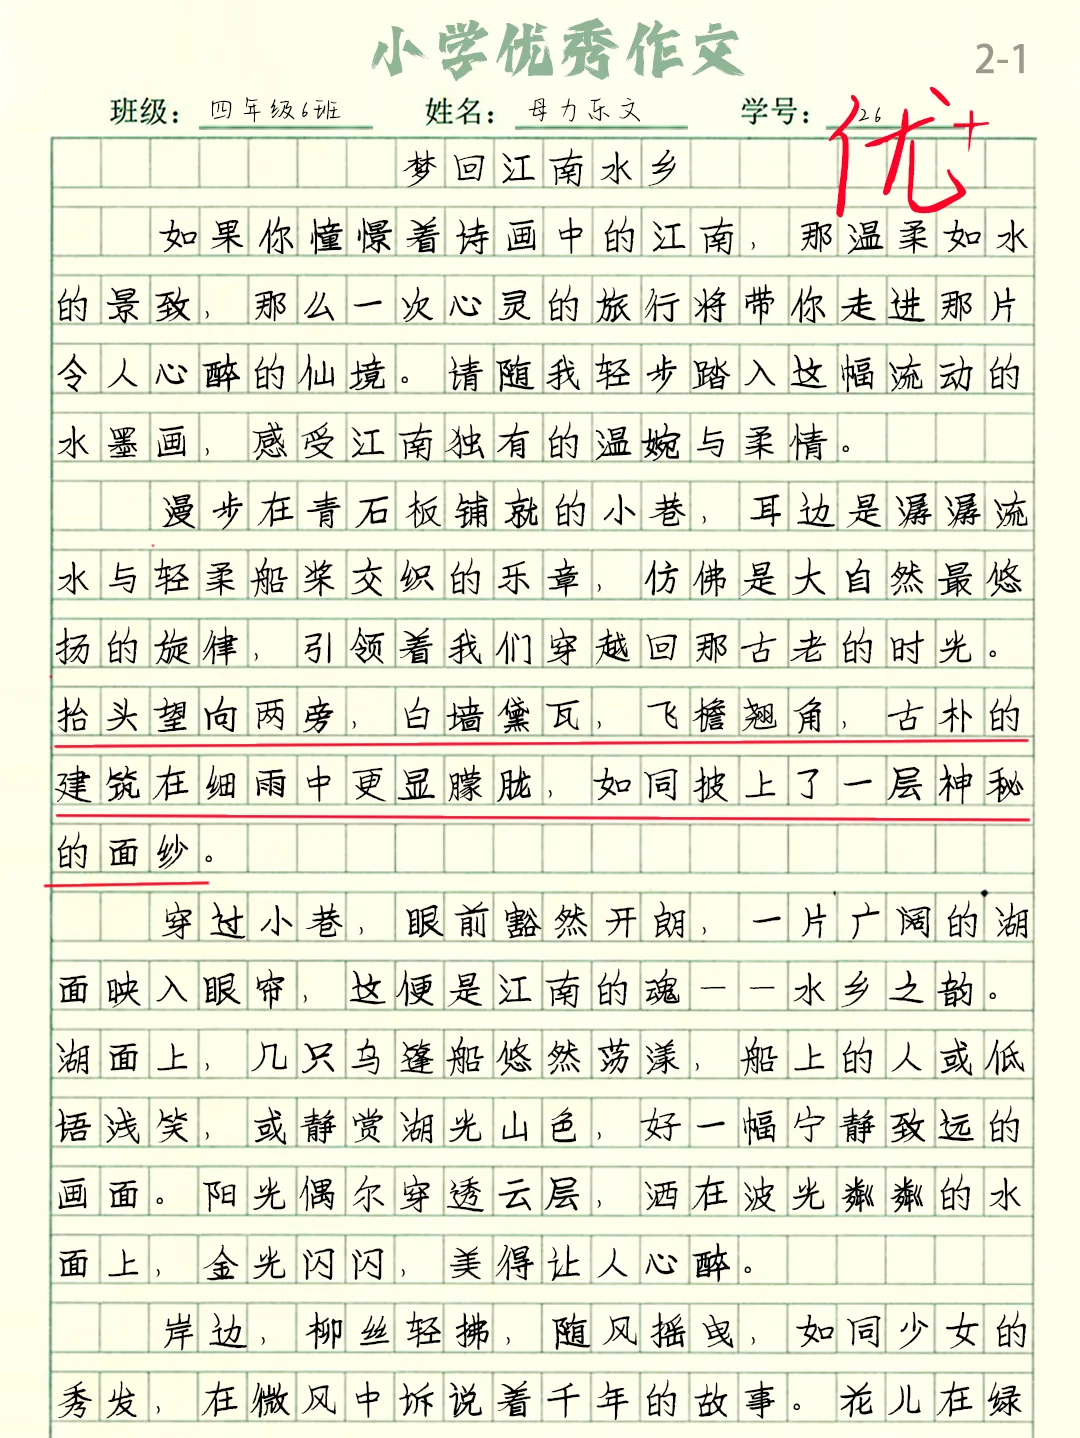 小学优秀作文
2-1
班级：四年级6班 姓名：母力乐文 学号：26
优+
梦回江南水乡
如果你憧憬着诗画中的江南，那温柔如水
的景致，那么一次心灵的旅行将带你走进那片
令人心醉的仙境。请随我轻步踏入这幅流动的
水墨画，感受江南独有的温婉与柔情。
漫步在青石板铺就的小巷，耳边是潺潺流
水与轻柔船桨交织的乐章，仿佛是大自然最悠
扬的旋律，引领着我们穿越回那古老的时光。
抬头望向两旁，白墙黛瓦，飞檐翘角，古朴的
建筑在细雨中更显朦胧，如同披上了一层神秘
的面纱。
穿过小巷，眼前豁然开朗，一片广阔的湖
面映入眼帘，这便是江南的魂——水乡之韵。
湖面上，几只乌篷船悠然荡漾，船上的人或低
语浅笑，或静赏湖光山色，好一幅宁静致远的
画面。阳光偶尔穿透云层，洒在波光粼粼的水
面上，金光闪闪，美得让人心醉。
岸边，柳丝轻拂，随风摇曳，如同少女的
秀发，在微风中诉说着千年的故事。花儿在绿